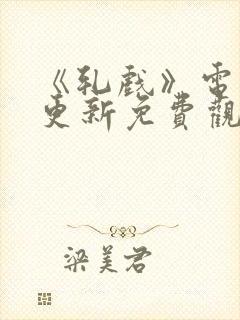 《乳戲》電
更新免費觀
梁美君